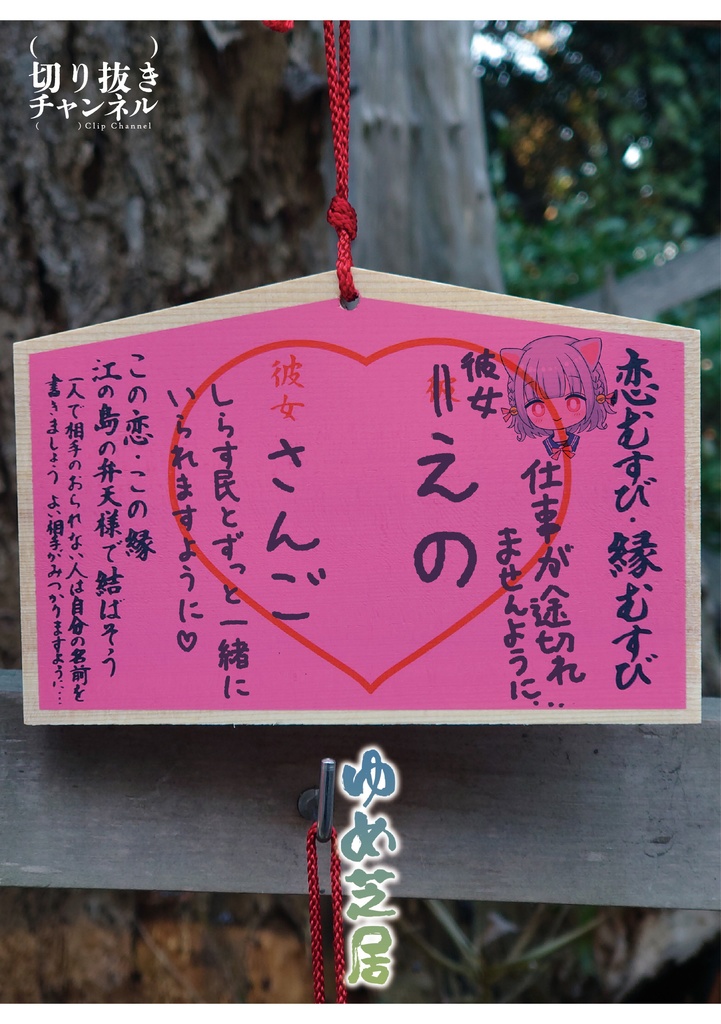 ( )
切り抜き
チャンネル
( )Clip Channel
恋むすび・縁むすび
仕事が途切れ
ませんように…
彼女
彼
えの
彼女
さんご
しらす民とずっと一緒に
いられますように♡
この恋・この縁
江の島の弁天様で結ばそう
一人で相手のおられない人は自分の名前を
書きましょう よい相手がみつかりますように…
ゆめ芝居